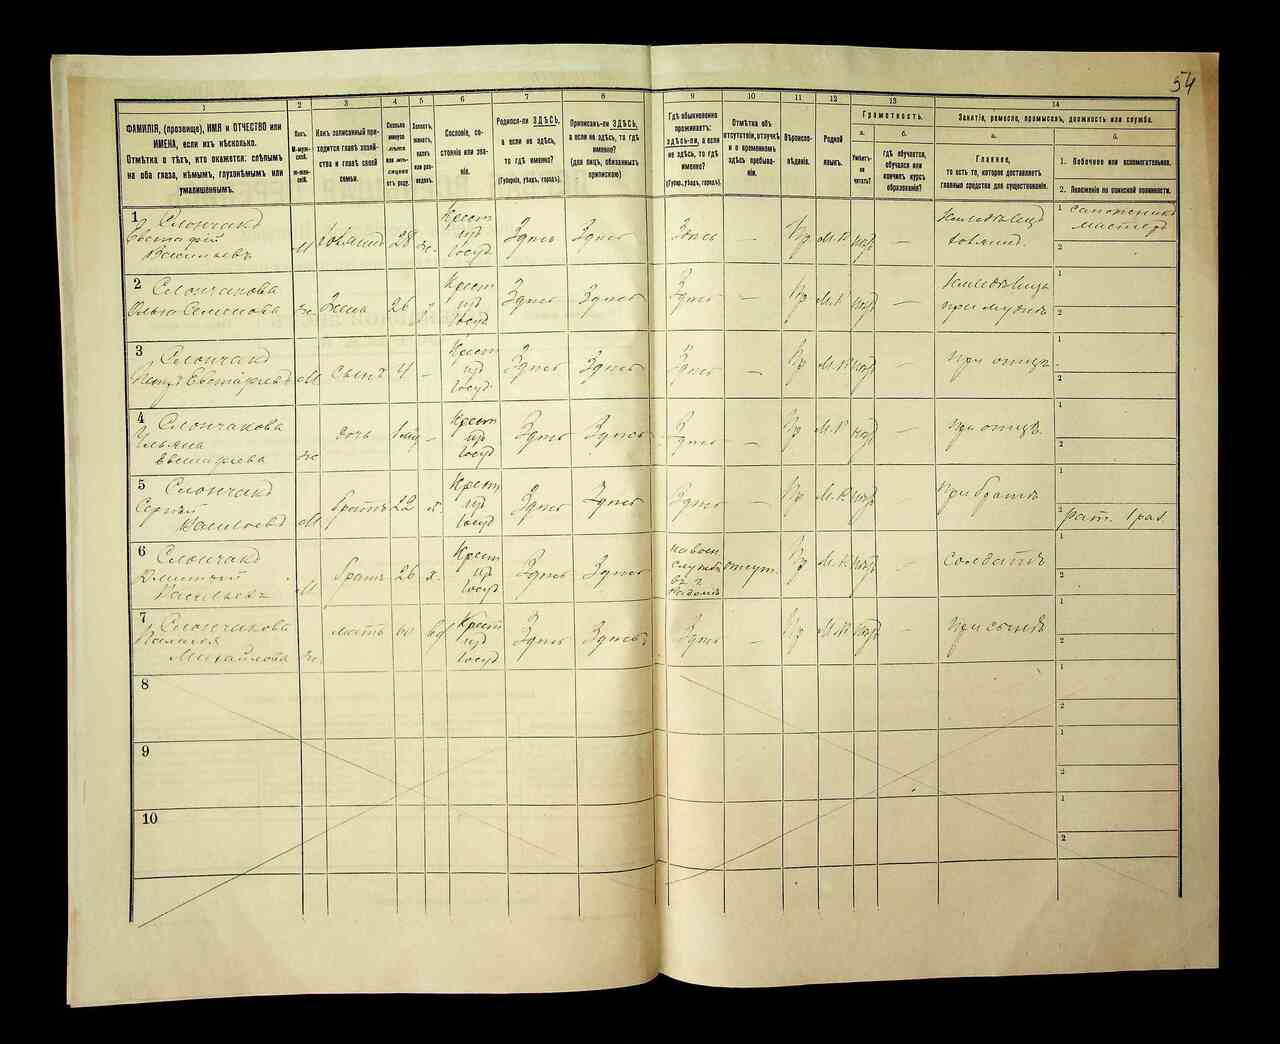 54
1 2 3 4 5 6 7 8 9 10 11 12 13 14
ФАМИЛІЯ, (прозвище), ИМЯ и ОТЧЕСТВО или
ИМЕНА, если ихъ нѣсколько.
Отмѣтка о тѣхъ, кто окажется: слѣпымъ
на оба глаза, нѣмымъ, глухонѣмымъ или
умалишеннымъ.
Полъ.
М-муж-
ской.
Ж-жен-
скій.
Какъ записанный при-
ходится главѣ хозяй-
ства и главѣ своей
семьи.
Сколько
минуло
лѣтъ
или мѣ-
сяцевъ
отъ роду.
Холостъ,
женатъ,
вдовъ
или раз-
веденъ.
Сословіе, со-
стояніе или зва-
ніе.
Родился-ли ЗДѢСЬ,
а если не здѣсь,
то гдѣ именно?
(Губернія, уѣздъ, городъ).
Приписанъ-ли ЗДѢСЬ,
а если не здѣсь, то гдѣ
именно?
(для лицъ, обязанныхъ
припискою)
Гдѣ обыкновенно
проживаетъ:
здѣсь-ли, а если
не здѣсь, то гдѣ
именно?
(Губер., уѣздъ, городъ).
Отмѣтка объ
отсутствіи, отлучкѣ
и о временномъ
здѣсь пребыва-
ніи.
Вѣроиспо-
вѣданіе.
Родной
языкъ.
Грамотность.
а.
Умѣетъ-
ли
читать?
б.
гдѣ обучается,
обучался или
кончилъ курсъ
образованія?
Занятіе, ремесло, промыселъ, должность или служба.
а.
Главное,
то есть то, которое доставляетъ
главныя средства для существованія.
б.
1. Побочное или вспомогательное.
2. Положеніе по воинской повинности.
1 Слончакъ
Евстафій
Васильевъ
М 28 ж. Крест из Госуд Здѣсь Здѣсь Здѣсь — Пр М.Р —
1 сапожникъ
мастеръ
2
2 Слончакова
Ольга Семенова
ж. Жена 26 Крест из Госуд Здѣсь Здѣсь Здѣсь — Пр М.Р —
при мужѣ
1
2
3 Слончакъ
Евстафіевъ
М сынъ 4 – Крест из Госуд Здѣсь Здѣсь Здѣсь — Пр М.Р —
При отцѣ
1
2
4 Слончакова
Ульяна
Евстафіева
ж дочь – Крест из Госуд Здѣсь Здѣсь Здѣсь — Пр М.Р —
При отцѣ
1
2
5 Слончакъ
Сергѣй
Васильевъ
М Братъ 22 х. Крест из Госуд Здѣсь Здѣсь Здѣсь — Пр М.Р —
При братѣ
1
2 рат. 1 раз
6 Слончакъ
Дмитрій
Васильевъ
М братъ 26 х. Крест из Госуд Здѣсь Здѣсь
на воен
службѣ
въ г
отсут. Пр М.Р —
солдатъ
1
2
7 Слончакова
Михайлова
ж. мать 60 вд Крест из Госуд Здѣсь Здѣсь Здѣсь — Пр М.Р —
При сынѣ
1
2
8
1
2
9
1
2
10
1
2